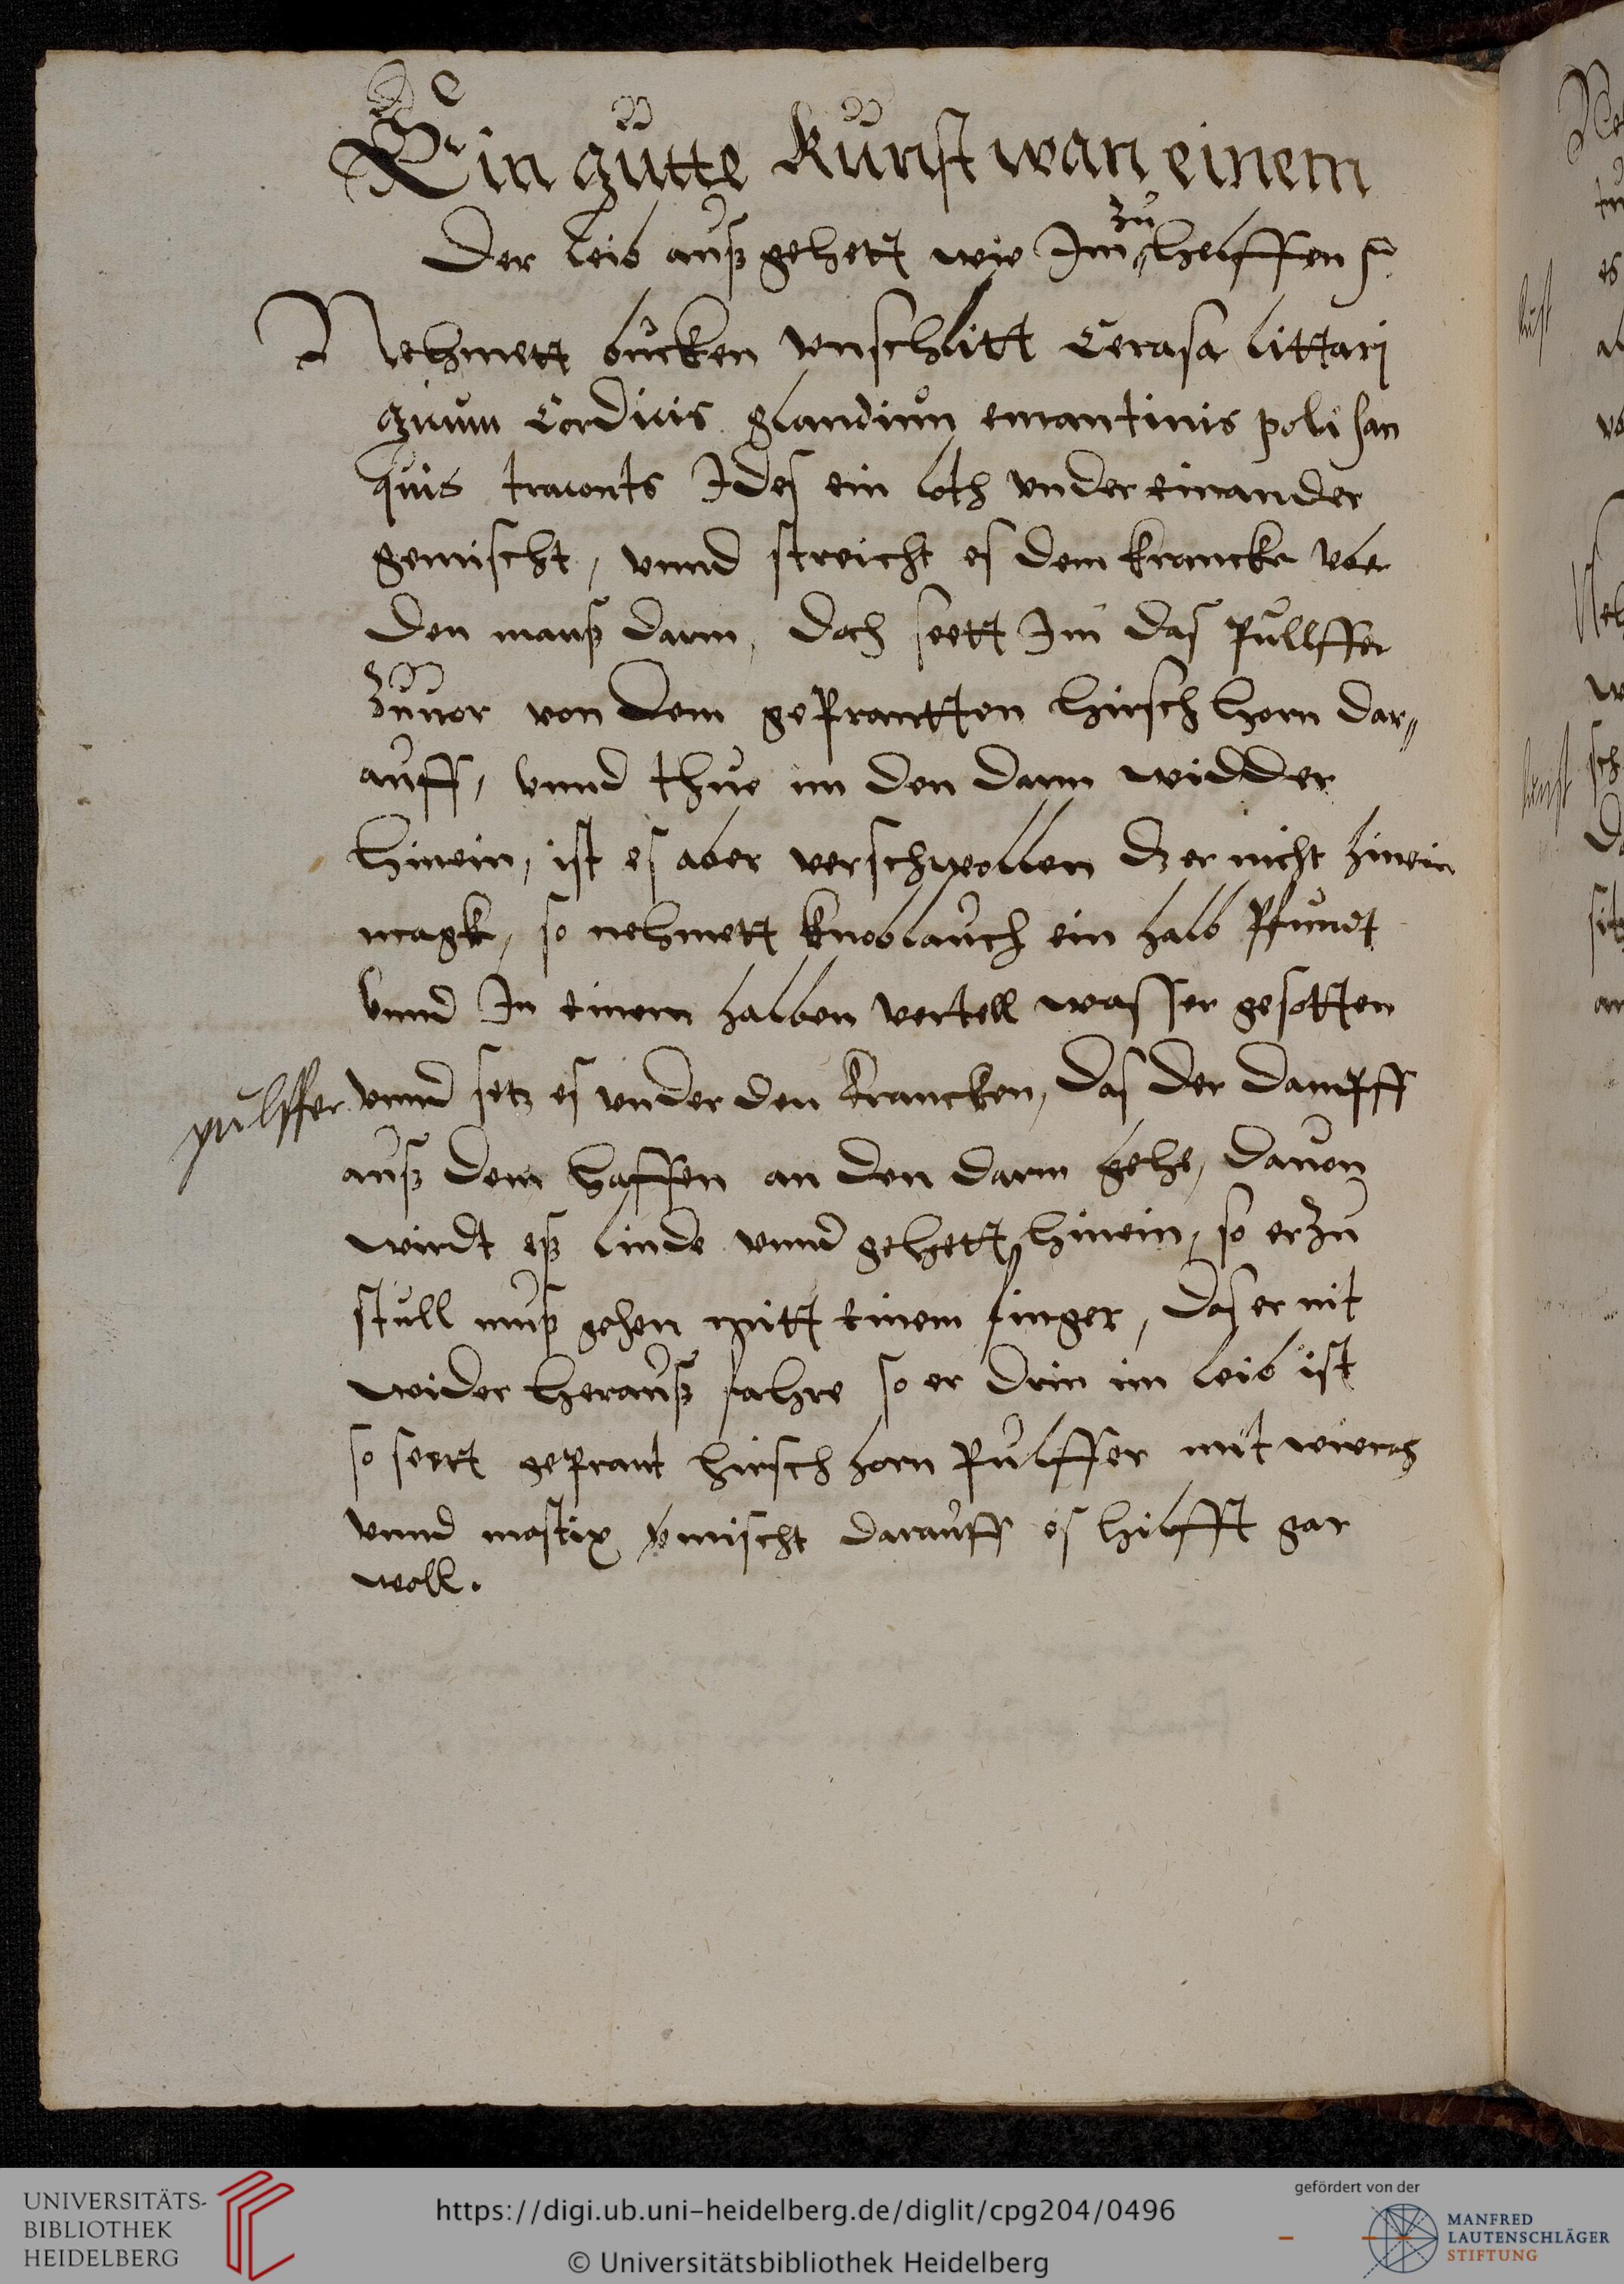 Ein gutte Kunst wan einem
zu
der leib auß gehett wie Im helffen
Nehmett bucken vnschlitt Cerasa littari
girum Cordicis glandium emantinis poli san
quis traconts Ides ein loth vnder einander
gemischt, vnnd streicht es dem krancke vber
den mauß darm, doch seett Im das Pullffer
zuuor von dem geprantten hirsch horn dar„
auff, vnnd thue im den darm widder
hinein, ist es aber verschwollen dz er nicht hinein
magk, so nehmett knoblauch ein halb Pfundt
vnnd In einem halben vertell wasser gesotten
pulffer vnnd setz es vnder den krancken, das der dampff
auß dem haffen an den darm gehe, dauon
wirdt eß linde vnnd gehett hinein, so er zu
stull muß gehen mitt einem finger, das er nit
wider herauß fahre so er drin im leib ist
so seett geprant hirsch horn Pulffer mit weirach
vnnd mastix vmischt darauff es hilfft gar
woll.
kunst
kunst
UNIVERSITÄTS-
BIBLIOTHEK
HEIDELBERG
https://digi.ub.uni-heidelberg.de/diglit/cpg204/0496
© Universitätsbibliothek Heidelberg
gefördert von der
MANFRED
LAUTENSCHLÄGER
STIFTUNG